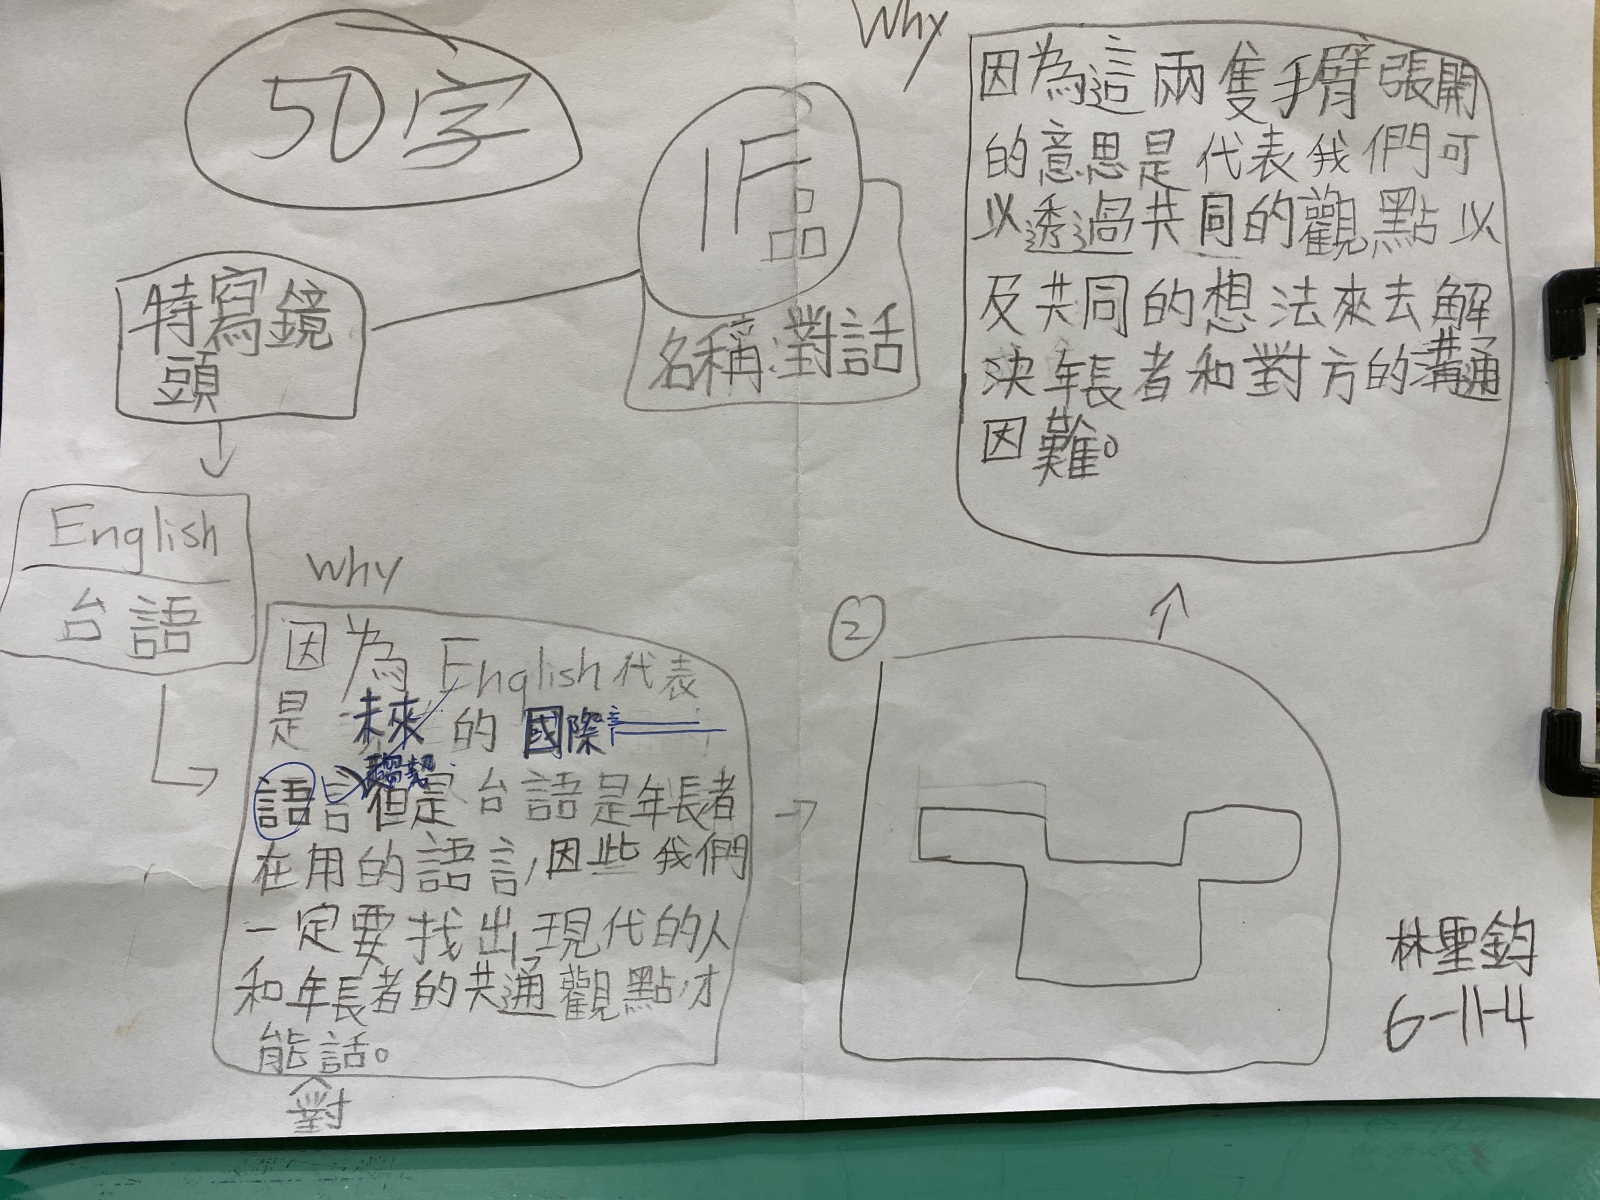 50字
1F品
名稱:對話
特寫鏡
頭
English
台語
Why
因為English代表
是未來的國際
語言但是台語是年長者
在用的語言,因些我們
一定要找出,現代的人
和年長者的共通觀點,才
能話。
對
②
Why
因為這兩隻手臂張開
的意思是代表我們可
以透過共同的觀點以
及共同的想法來去解
決年長者和對方的溝通
因難。
林聖鈞
6-11-4